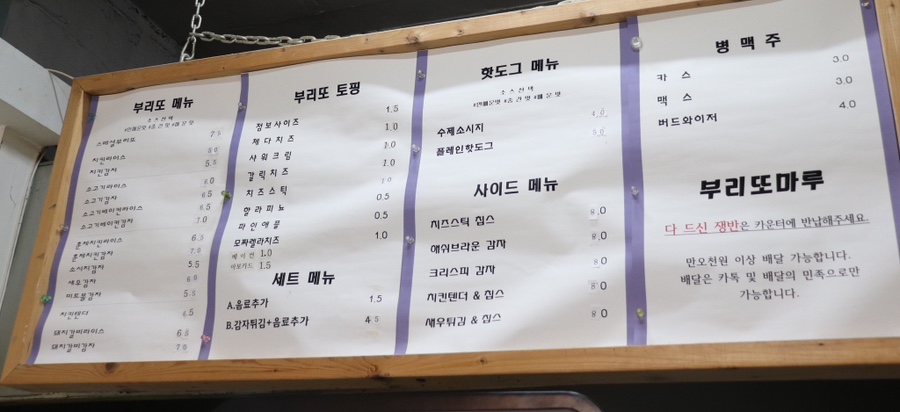 부리또 메뉴
소스선택
#안매운맛 #중간맛 #매운맛
스페셜부리또
치킨라이스
치킨감자 5.5
소고기라이스 6.0
소고기감자 6.5
소고기베이컨라이스 6.5
소고기베이컨감자 7.0
훈제치킨라이스
훈제치킨감자
소시지감자 5.5
새우감자
미트볼감자 5.5
치킨텐더
돼지갈비라이스 6.5
돼지갈비감자
부리또 토핑
점보사이즈 1.5
체다치즈 1.0
사워크림 1.0
갈릭치즈 1.0
치즈스틱 1.0
할라피뇨 0.5
파인애플 0.5
모짜렐라치즈 1.0
베이컨 1.0
아보카도 1.5
세트 메뉴
A.음료추가 1.5
B.감자튀김+음료추가 4.5
핫도그 메뉴
소스선택
#안매운맛 #중간맛 #매운맛
수제소시지
플레인핫도그
사이드 메뉴
치즈스틱 칩스 8.0
해쉬브라운 감자 8.0
크리스피 감자 8.0
치킨텐더 & 칩스 8.0
새우튀김 & 칩스 8.0
병 맥 주
카 스 3.0
맥 스 3.0
버드와이저 4.0
부리또마루
다 드신 쟁반은 카운터에 반납해주세요.
만오천원 이상 배달 가능합니다.
배달은 카톡 및 배달의 민족으로만
가능합니다.